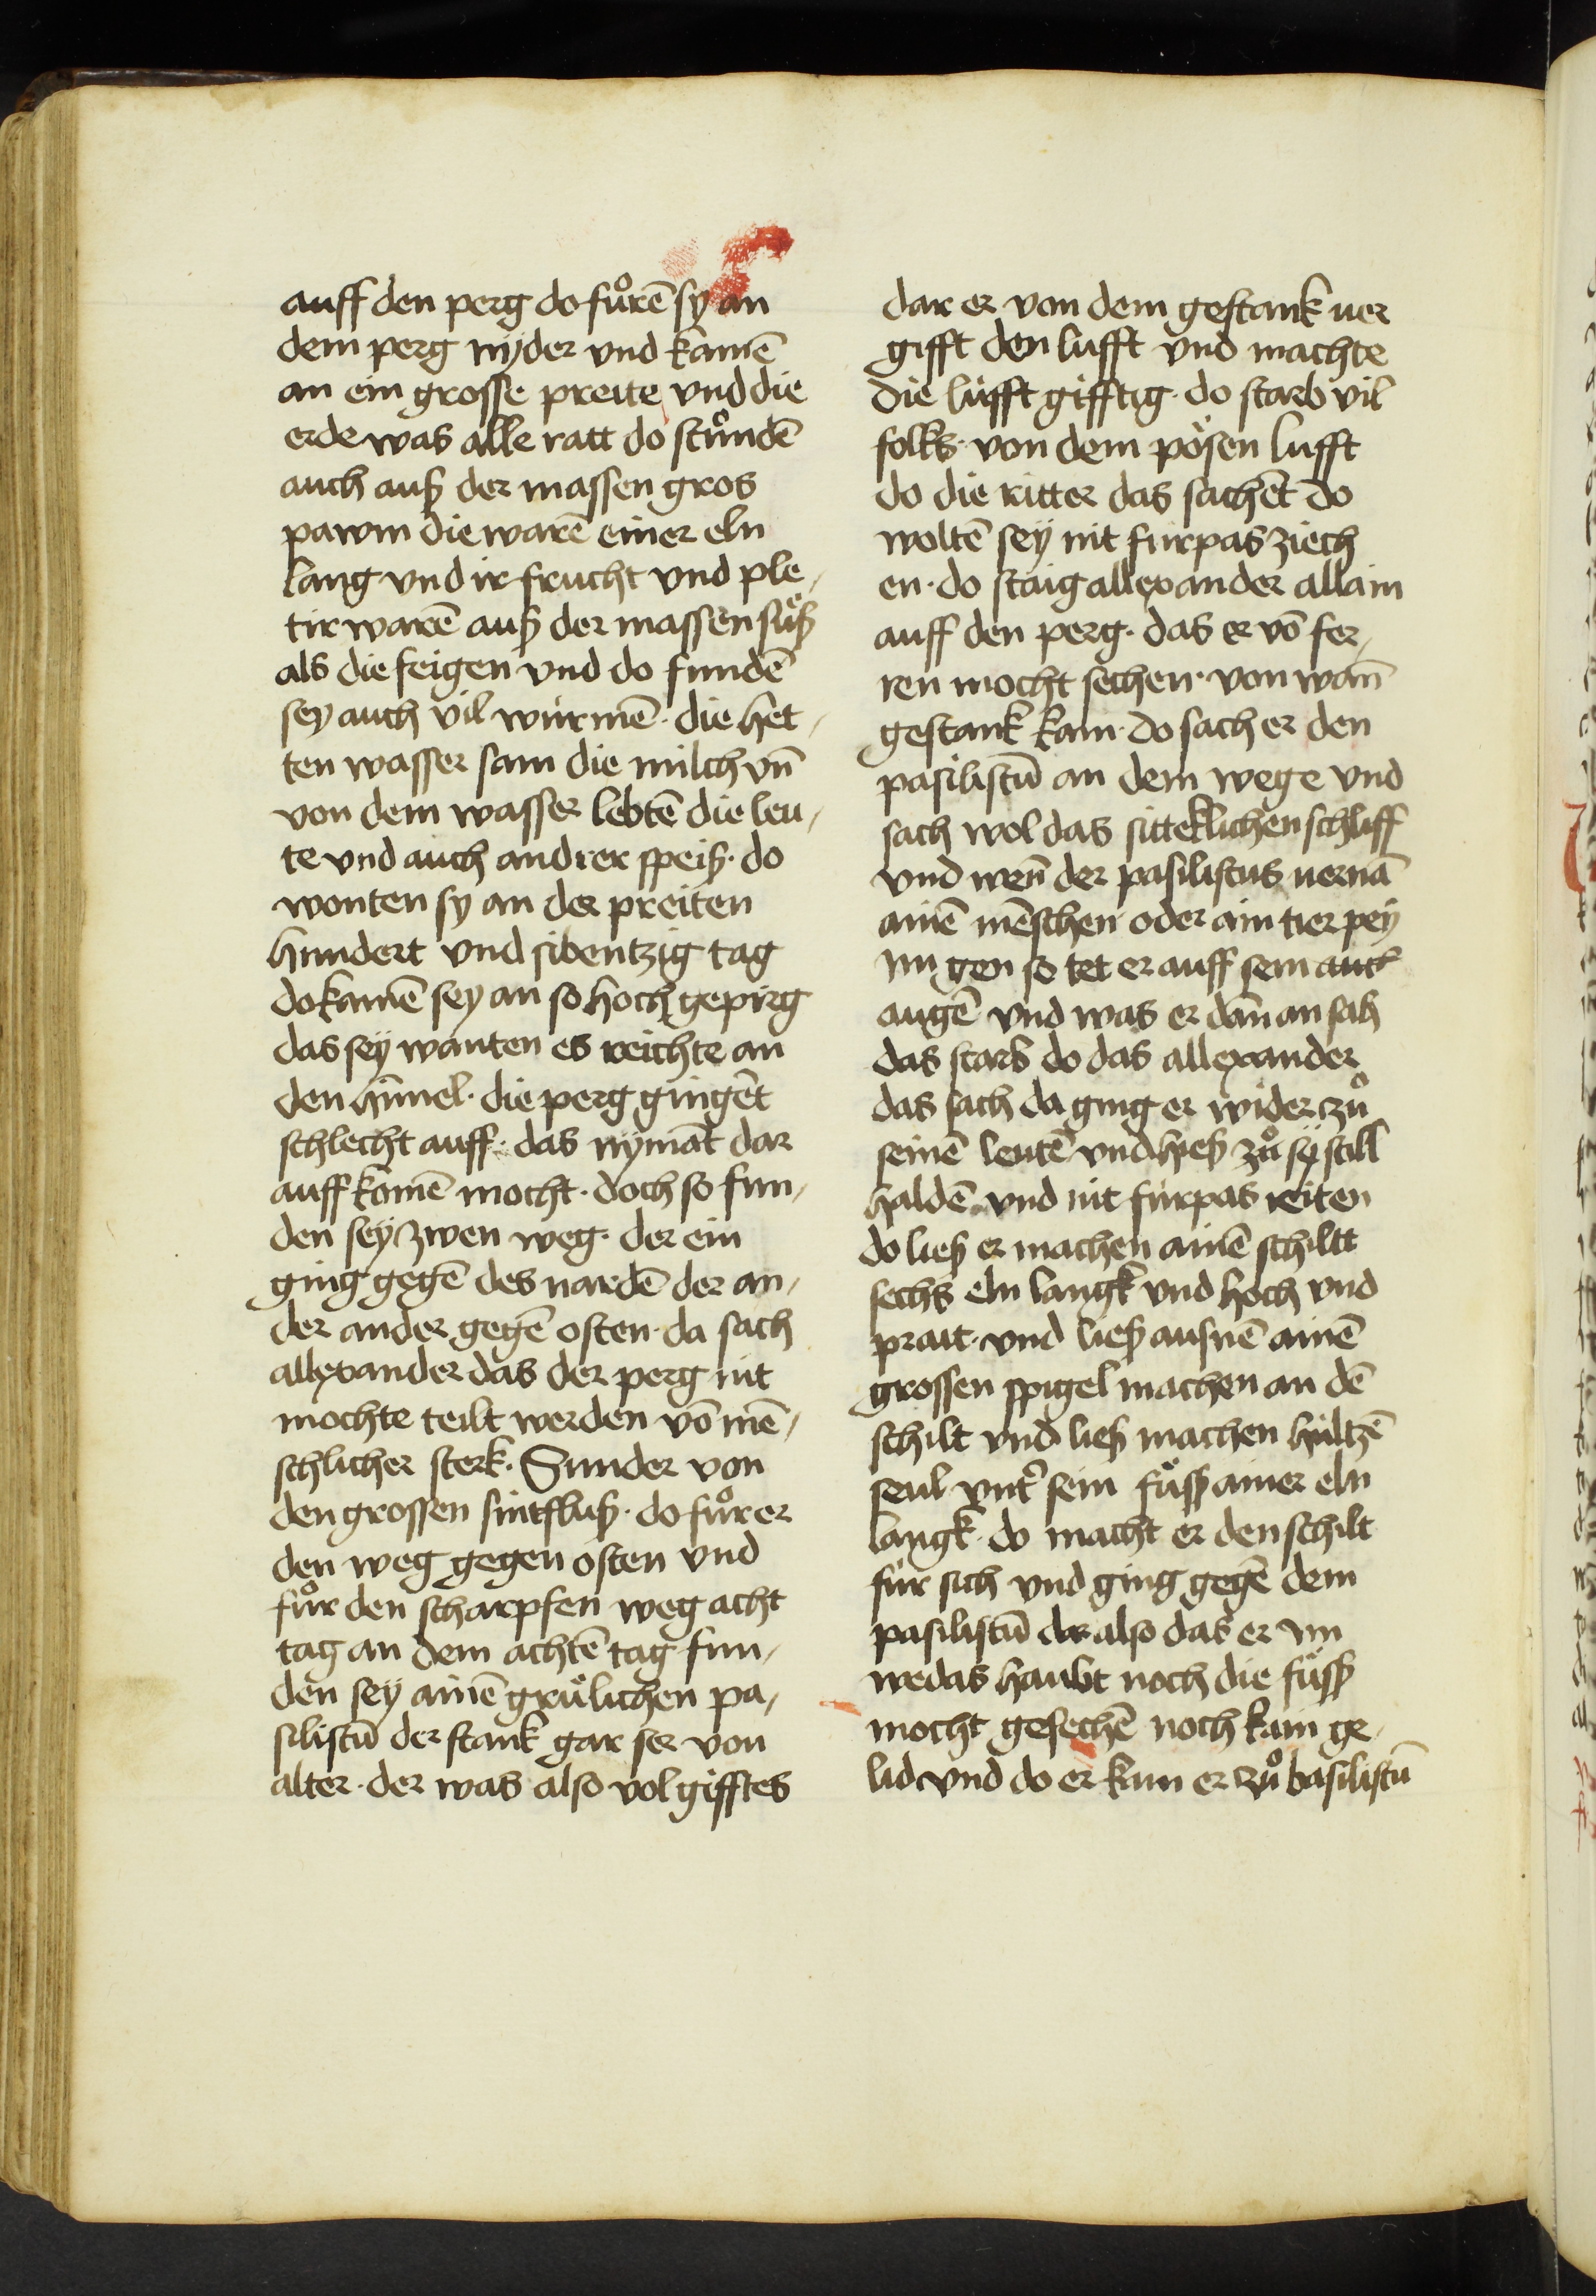 auff den perg do fůrē sy an
dem perg nyder vnd kamē
an ein grosse preite vnd die
erde was alle ratt do stůndē
auch auß der massen gros
pawm die warē einer eln
lang vnd ir frucht vnd ple,
tir warē auß der massen sůß
als die feigen vnd do fundē
sey auch vil würmē · die het,
ten wasser sam die milch vn̄
von dem wasser lebtē die leu,
te vnd auch andrer speiß · do
wonten sy an der preiten
hundert vnd sibentzig tag
do kamē sey an so hoch gepirg
das sey wanten es reichte an
den hīmel · die perg gingēt
schlecht auff · das nymāt dar
auff komē mocht · doch so fun,
den sey zwen weg · der ein
ging gegē des nardē der an,
der ander gegē osten · da sach
allexander das der perg nit
mochte teilt werden vō mē,
schlicher sterk · Sunder von
den grossen sintfluß · do fůr er
den weg gegen osten vnd
fůr den scharpfen weg acht
tag an dem achtē tag fun,
den sey ainē grülichen pa,
silistū der stank gar ser von
alter · der was also vol gifftes
dar er von dem gestank uer
gifft den lufft vnd machte
die lüfft gifftig · do starb vil
folks · von dem pösen lufft
do die ritter das sachēt do
woltē sey nit fürpas ziech
en · do staig allexander allain
auff den perg · das er vō fer,
ren mocht sechen · von wan̄
gestank kam · do sach er den
pasilistū an dem wege vnd
sach wol das sitteklichen schlieff
vnd wen̄ der pasilistus uernā
ainē mēschen oder ain tier pey
im gen so tet er auff sein auch
augē vnd was er dan̄ an sah
das starb do das allexander
das sach da ging er wider zů
seinē leutē vnd hieß zů sy still
haldē · vnd nit fürpas reiten
do ließ er machen ainē schiltt
sechs eln langk vnd hoch vnd
prait · vnd ließ ausnē ainē
grossen spigel machen an dē
schilt vnd ließ machen hültzē
seul vnt' sein füß ainer eln
langk · do macht er den schilt
für sich vnd ging gegē dem
pasilistū dar also das er im
wedas haubt noch die füß
mocht gesechē noch kain ge,
lid vnd do er kun er zů basilistū